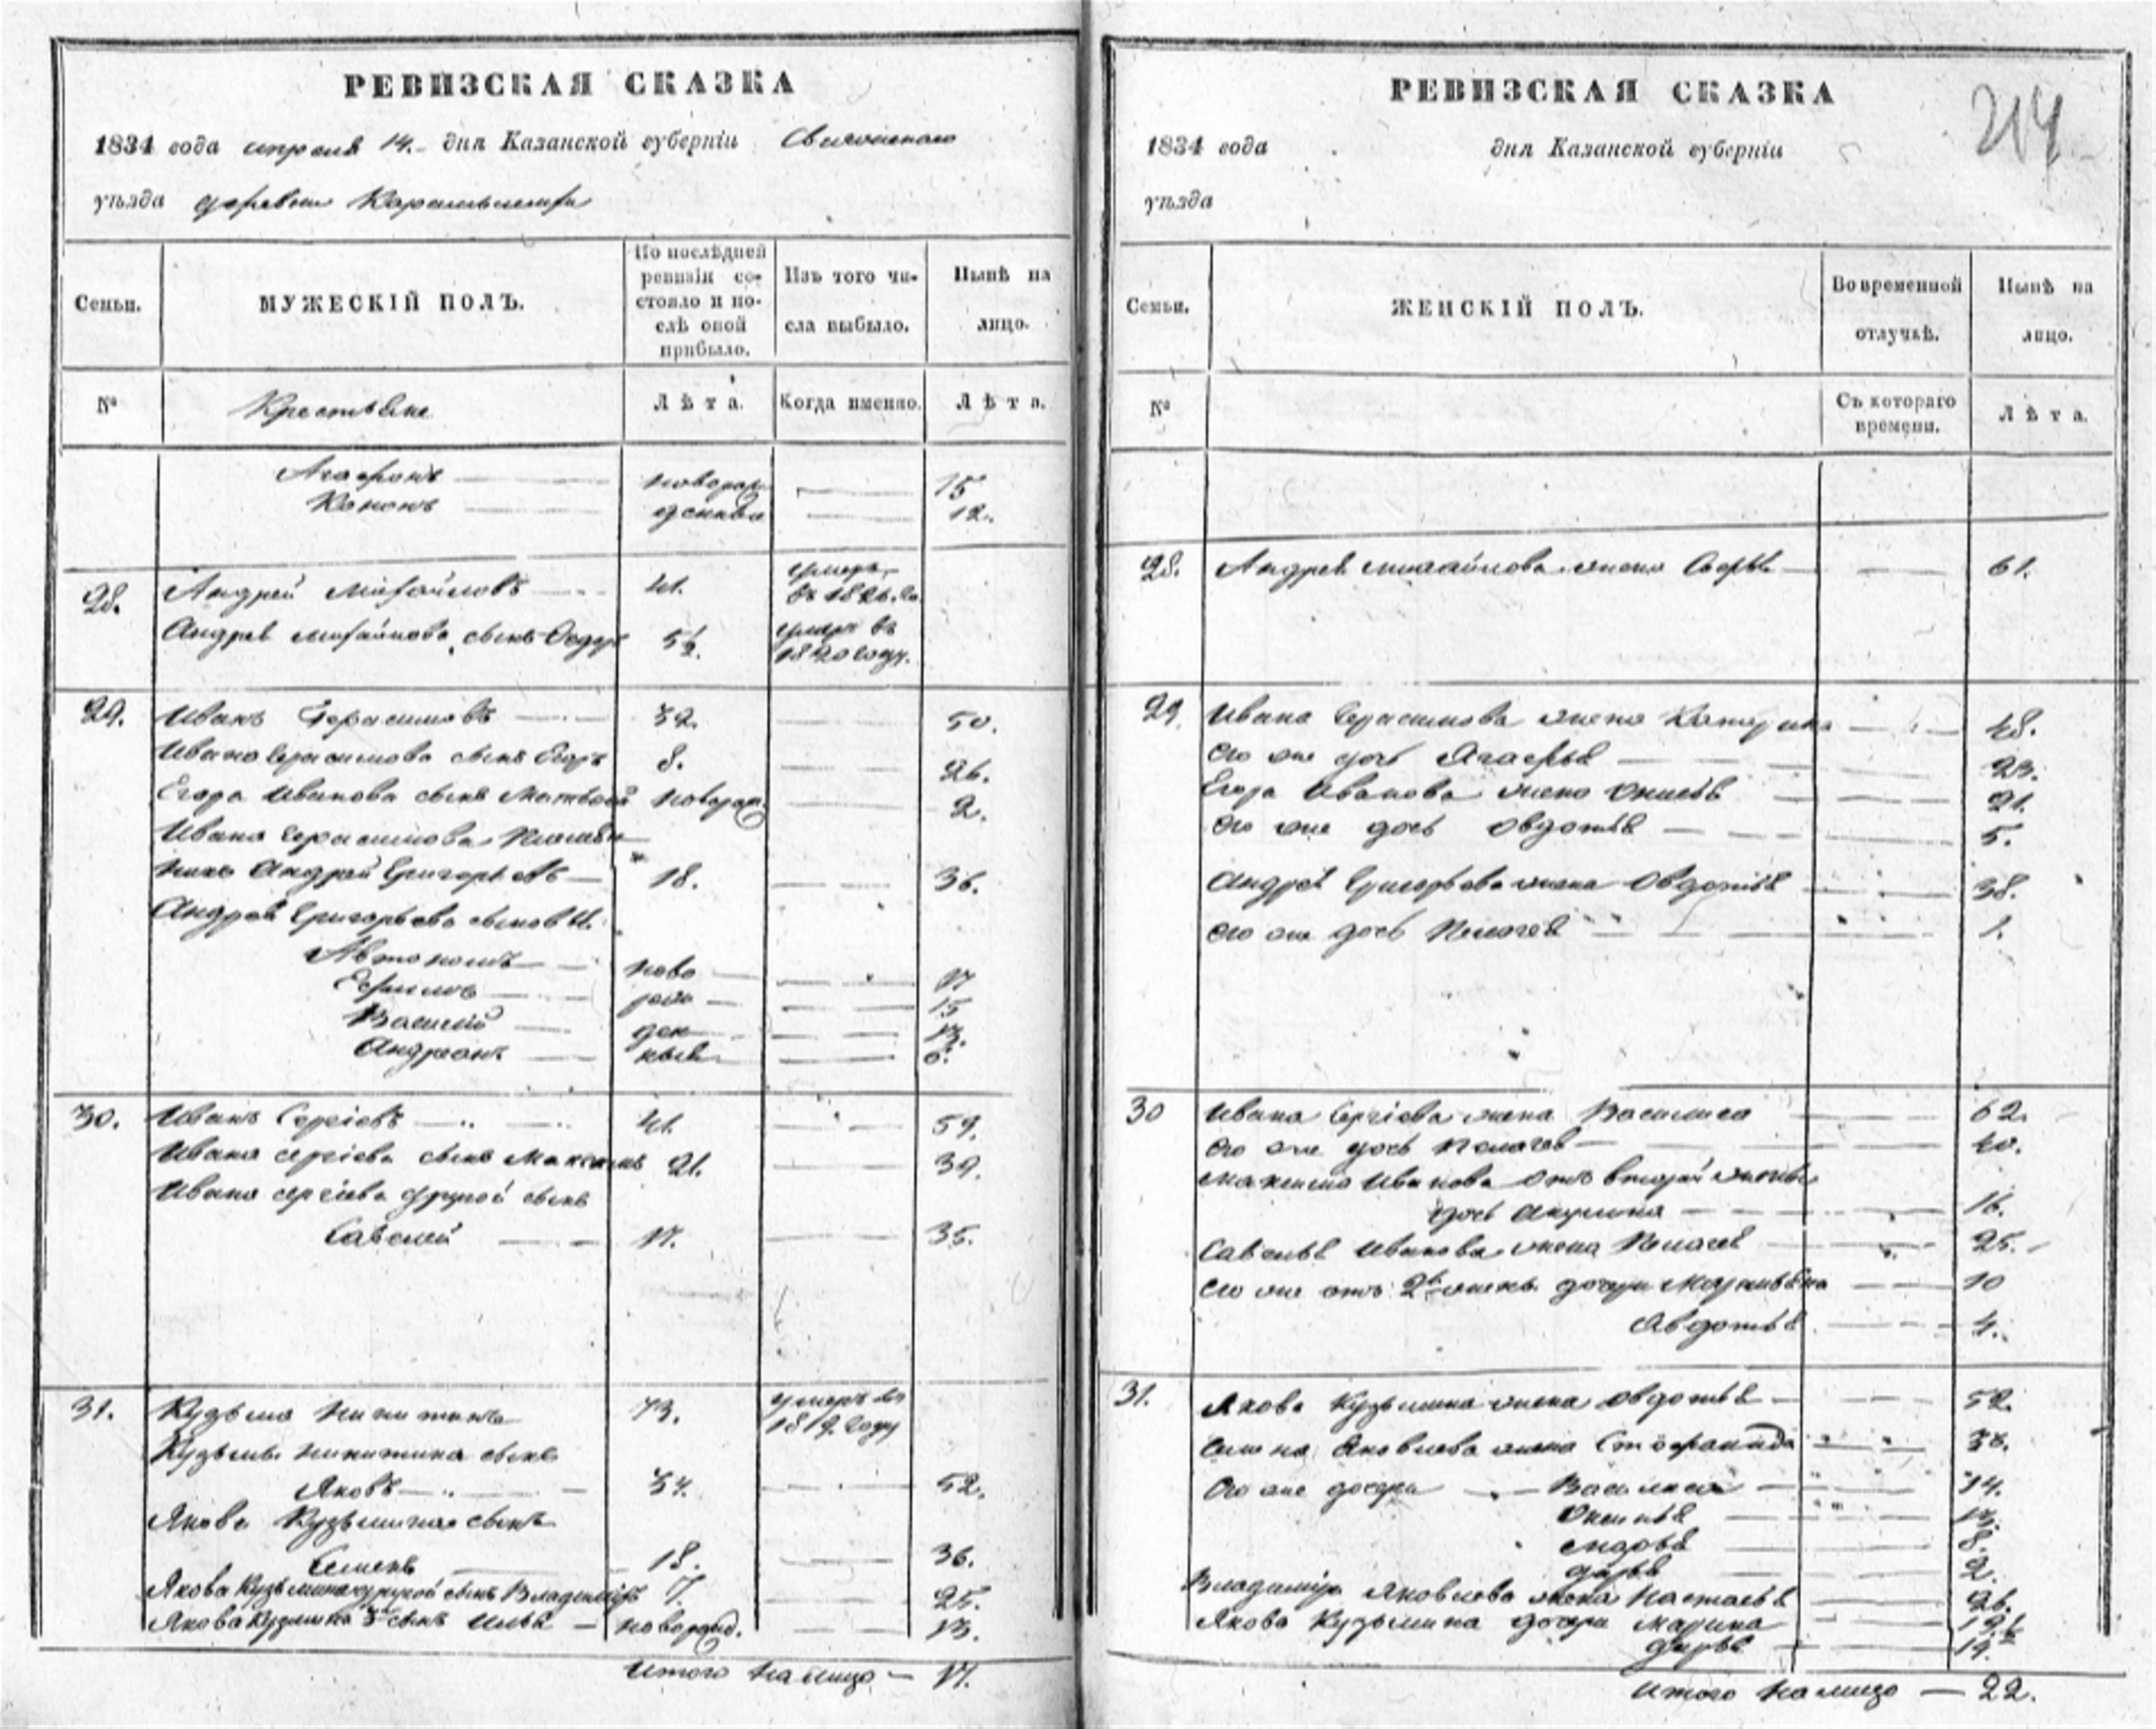 РЕВИЗСКАЯ СКАЗКА
1834 года апреля 14. дня Казанской губерніи Свияжскаго
уѣзда деревни
Семьи.
МУЖЕСКІЙ ПОЛЪ.
По послѣдней ревизіи состояло и послѣ оной прибыло.
Изъ того числа выбыло.
Нынѣ на лицо.
№
Крестьяне
Лѣта.
Когда именно.
Лѣта.
Агафонъ новорож 15
Кононъ денные 12.
28. Андрей Михайловъ 41. умеръ въ 1826. го
Андрея Михайлова сынъ Федоръ 5½. умеръ въ 1820 году.
29. Иванъ Герасимовъ 32. 50.
Ивана Герасимова сынъ Егоръ 8. 26.
Егора Иванова сынъ Матвей новорож. 2.
Ивана Герасимова племян
никъ Андрей Григорьевъ 18. 36.
Андрея Григорьева сыновья.
Автономъ ново 17
Ефимъ рож 15
Василей ден 13.
Андреянъ ные 6.
30. Иванъ Сергіевъ 41. 59.
Ивана Сергіева сынъ Максимъ 21. 39.
Ивана Сергіева другой сынъ
Савелей 17. 35.
31. Кузьма Никитинъ 73. умеръ въ 1819. году
Кузьмы Никитина сынъ
Яковъ 34. 52.
Якова Кузьмина сынъ
Семенъ 18. 36.
Якова Кузьмина другой сынъ Владимиръ 7. 25.
Якова Кузмина 3й сынъ Илья новорожд. 13.
Итого на лицо — 17.
РЕВИЗСКАЯ СКАЗКА
214
1834 года дня Казанской губерніи
уѣзда
Семьи.
ЖЕНСКІЙ ПОЛЪ.
Во временной отлучкѣ.
Нынѣ на лицо.
№
Съ котораго времени.
Лѣта.
28. Андрея Михайлова жена Софья 61.
29. Ивана Герасимова жена Катерина 48.
Его же дочь Агафья 23.
Егора Иванова жена Ксинья 21.
Его же дочь Овдотья 5.
Андрея Григорьева жена Овдотья 38.
Его же дочь Пелагея 1.
30 Ивана Сергіева жена Василиса 62.
Его же дочь Пелагея 40.
Максима Иванова отъ второй жены
дочь Акулина 16.
Савелья Иванова жена Пелагея 25.
Его же отъ 2й жены дочери Марья 10
Авдотья 4.
31. Якова Кузьмина жена Овдотья 52.
Семена Яковлева жена Стефанида 38.
Его же дочери Василиса 14.
Ксинья 13.
Марья 8.
Дарья 2.
Владимира Яковлева жена Настасья 26.
Якова Кузьмина дочери Марина 19½
Дарья 14.
Итого на лицо — 22.